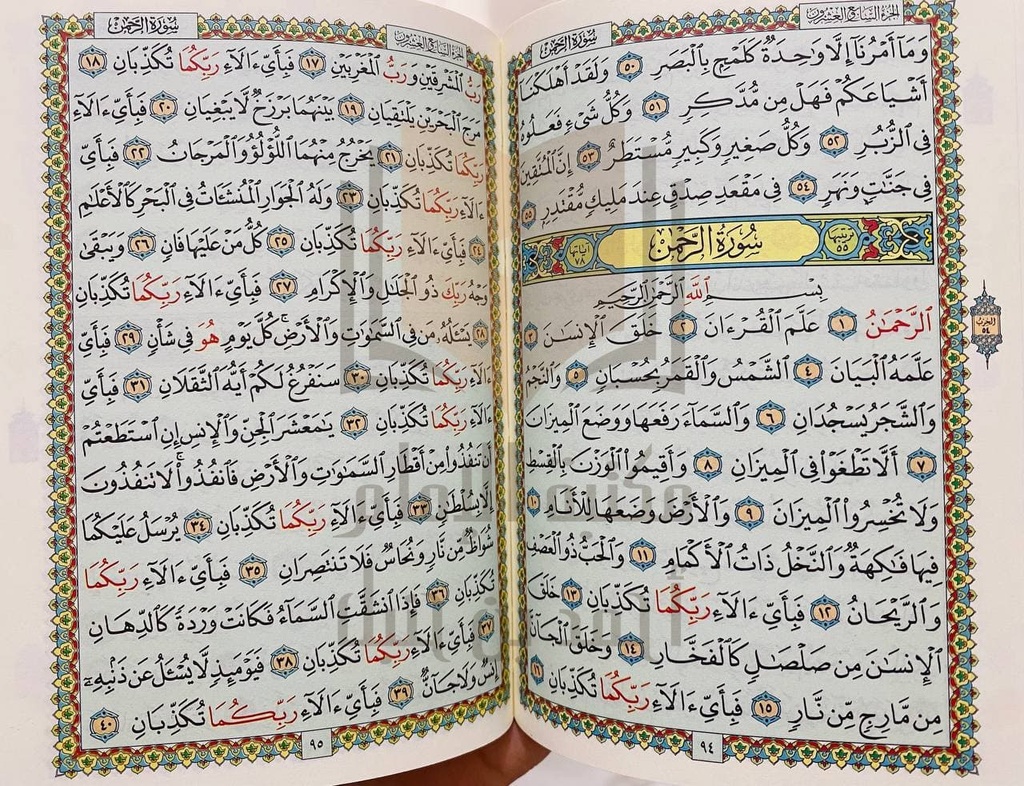 الجزء السابع والعشرون
سُورَةُ الرَّحْمَٰن
وَمَآ أَمْرُنَآ إِلَّا وَٰحِدَةٌ كَلَمْحٍۭ بِٱلْبَصَرِ ٥٠ وَلَقَدْ أَهْلَكْنَآ
أَشْيَاعَكُمْ فَهَلْ مِن مُّدَّكِرٍ ٥١ وَكُلُّ شَىْءٍ فَعَلُوهُ
فِى ٱلزُّبُرِ ٥٢ وَكُلُّ صَغِيرٍ وَكَبِيرٍ مُّسْتَطَرٌ ٥٣ إِنَّ ٱلْمُتَّقِينَ
فِى جَنَّٰتٍ وَنَهَرٍ ٥٤ فِى مَقْعَدِ صِدْقٍ عِندَ مَلِيكٍ مُّقْتَدِرٍۭ ٥٥
ترتيبها ٥٥ سُورَةُ الرَّحْمَٰن آياتها ٧٨
بِسْمِ ٱللَّهِ ٱلرَّحْمَٰنِ ٱلرَّحِيمِ
ٱلرَّحْمَٰنُ ١ عَلَّمَ ٱلْقُرْءَانَ ٢ خَلَقَ ٱلْإِنسَٰنَ ٣
عَلَّمَهُ ٱلْبَيَانَ ٤ ٱلشَّمْسُ وَٱلْقَمَرُ بِحُسْبَانٍ ٥ وَٱلنَّجْمُ
وَٱلشَّجَرُ يَسْجُدَانِ ٦ وَٱلسَّمَآءَ رَفَعَهَا وَوَضَعَ ٱلْمِيزَانَ
٧ أَلَّا تَطْغَوْا۟ فِى ٱلْمِيزَانِ ٨ وَأَقِيمُوا۟ ٱلْوَزْنَ بِٱلْقِسْطِ
وَلَا تُخْسِرُوا۟ ٱلْمِيزَانَ ٩ وَٱلْأَرْضَ وَضَعَهَا لِلْأَنَامِ ١٠
فِيهَا فَٰكِهَةٌ وَٱلنَّخْلُ ذَاتُ ٱلْأَكْمَامِ ١١ وَٱلْحَبُّ ذُو ٱلْعَصْفِ
وَٱلرَّيْحَانُ ١٢ فَبِأَىِّ ءَالَآءِ رَبِّكُمَا تُكَذِّبَانِ ١٣ خَلَقَ
ٱلْإِنسَٰنَ مِن صَلْصَٰلٍ كَٱلْفَخَّارِ ١٤ وَخَلَقَ ٱلْجَآنَّ
مِن مَّارِجٍ مِّن نَّارٍ ١٥ فَبِأَىِّ ءَالَآءِ رَبِّكُمَا تُكَذِّبَانِ ١٦
٩٤
الحزب ٥٤
الجزء السابع والعشرون
سُورَةُ الرَّحْمَٰن
رَبُّ ٱلْمَشْرِقَيْنِ وَرَبُّ ٱلْمَغْرِبَيْنِ ١٧ فَبِأَىِّ ءَالَآءِ رَبِّكُمَا تُكَذِّبَانِ ١٨
مَرَجَ ٱلْبَحْرَيْنِ يَلْتَقِيَانِ ١٩ بَيْنَهُمَا بَرْزَخٌ لَّا يَبْغِيَانِ ٢٠ فَبِأَىِّ ءَالَآءِ
رَبِّكُمَا تُكَذِّبَانِ ٢١ يَخْرُجُ مِنْهُمَا ٱللُّؤْلُؤُ وَٱلْمَرْجَانُ ٢٢ فَبِأَىِّ
ءَالَآءِ رَبِّكُمَا تُكَذِّبَانِ ٢٣ وَلَهُ ٱلْجَوَارِ ٱلْمُنشَـَٔاتُ فِى ٱلْبَحْرِ كَٱلْأَعْلَٰمِ
٢٤ فَبِأَىِّ ءَالَآءِ رَبِّكُمَا تُكَذِّبَانِ ٢٥ كُلُّ مَنْ عَلَيْهَا فَانٍ ٢٦ وَيَبْقَىٰ
وَجْهُ رَبِّكَ ذُو ٱلْجَلَٰلِ وَٱلْإِكْرَامِ ٢٧ فَبِأَىِّ ءَالَآءِ رَبِّكُمَا تُكَذِّبَانِ
٢٨ يَسْـَٔلُهُۥ مَن فِى ٱلسَّمَٰوَٰتِ وَٱلْأَرْضِ ۚ كُلَّ يَوْمٍ هُوَ فِى شَأْنٍ ٢٩ فَبِأَىِّ
ءَالَآءِ رَبِّكُمَا تُكَذِّبَانِ ٣٠ سَنَفْرُغُ لَكُمْ أَيُّهَ ٱلثَّقَلَانِ ٣١ فَبِأَىِّ
ءَالَآءِ رَبِّكُمَا تُكَذِّبَانِ ٣٢ يَٰمَعْشَرَ ٱلْجِنِّ وَٱلْإِنسِ إِنِ ٱسْتَطَعْتُمْ
أَن تَنفُذُوا۟ مِنْ أَقْطَارِ ٱلسَّمَٰوَٰتِ وَٱلْأَرْضِ فَٱنفُذُوا۟ ۚ لَا تَنفُذُونَ
إِلَّا بِسُلْطَٰنٍ ٣٣ فَبِأَىِّ ءَالَآءِ رَبِّكُمَا تُكَذِّبَانِ ٣٤ يُرْسَلُ عَلَيْكُمَا
شُوَاظٌ مِّن نَّارٍ وَنُحَاسٌ فَلَا تَنتَصِرَانِ ٣٥ فَبِأَىِّ ءَالَآءِ رَبِّكُمَا
تُكَذِّبَانِ ٣٦ فَإِذَا ٱنشَقَّتِ ٱلسَّمَآءُ فَكَانَتْ وَرْدَةً كَٱلدِّهَانِ
٣٧ فَبِأَىِّ ءَالَآءِ رَبِّكُمَا تُكَذِّبَانِ ٣٨ فَيَوْمَئِذٍ لَّا يُسْـَٔلُ عَن ذَنۢبِهِۦٓ
إِنسٌ وَلَا جَآنٌّ ٣٩ فَبِأَىِّ ءَالَآءِ رَبِّكُمَا تُكَذِّبَانِ ٤٠
٩٥